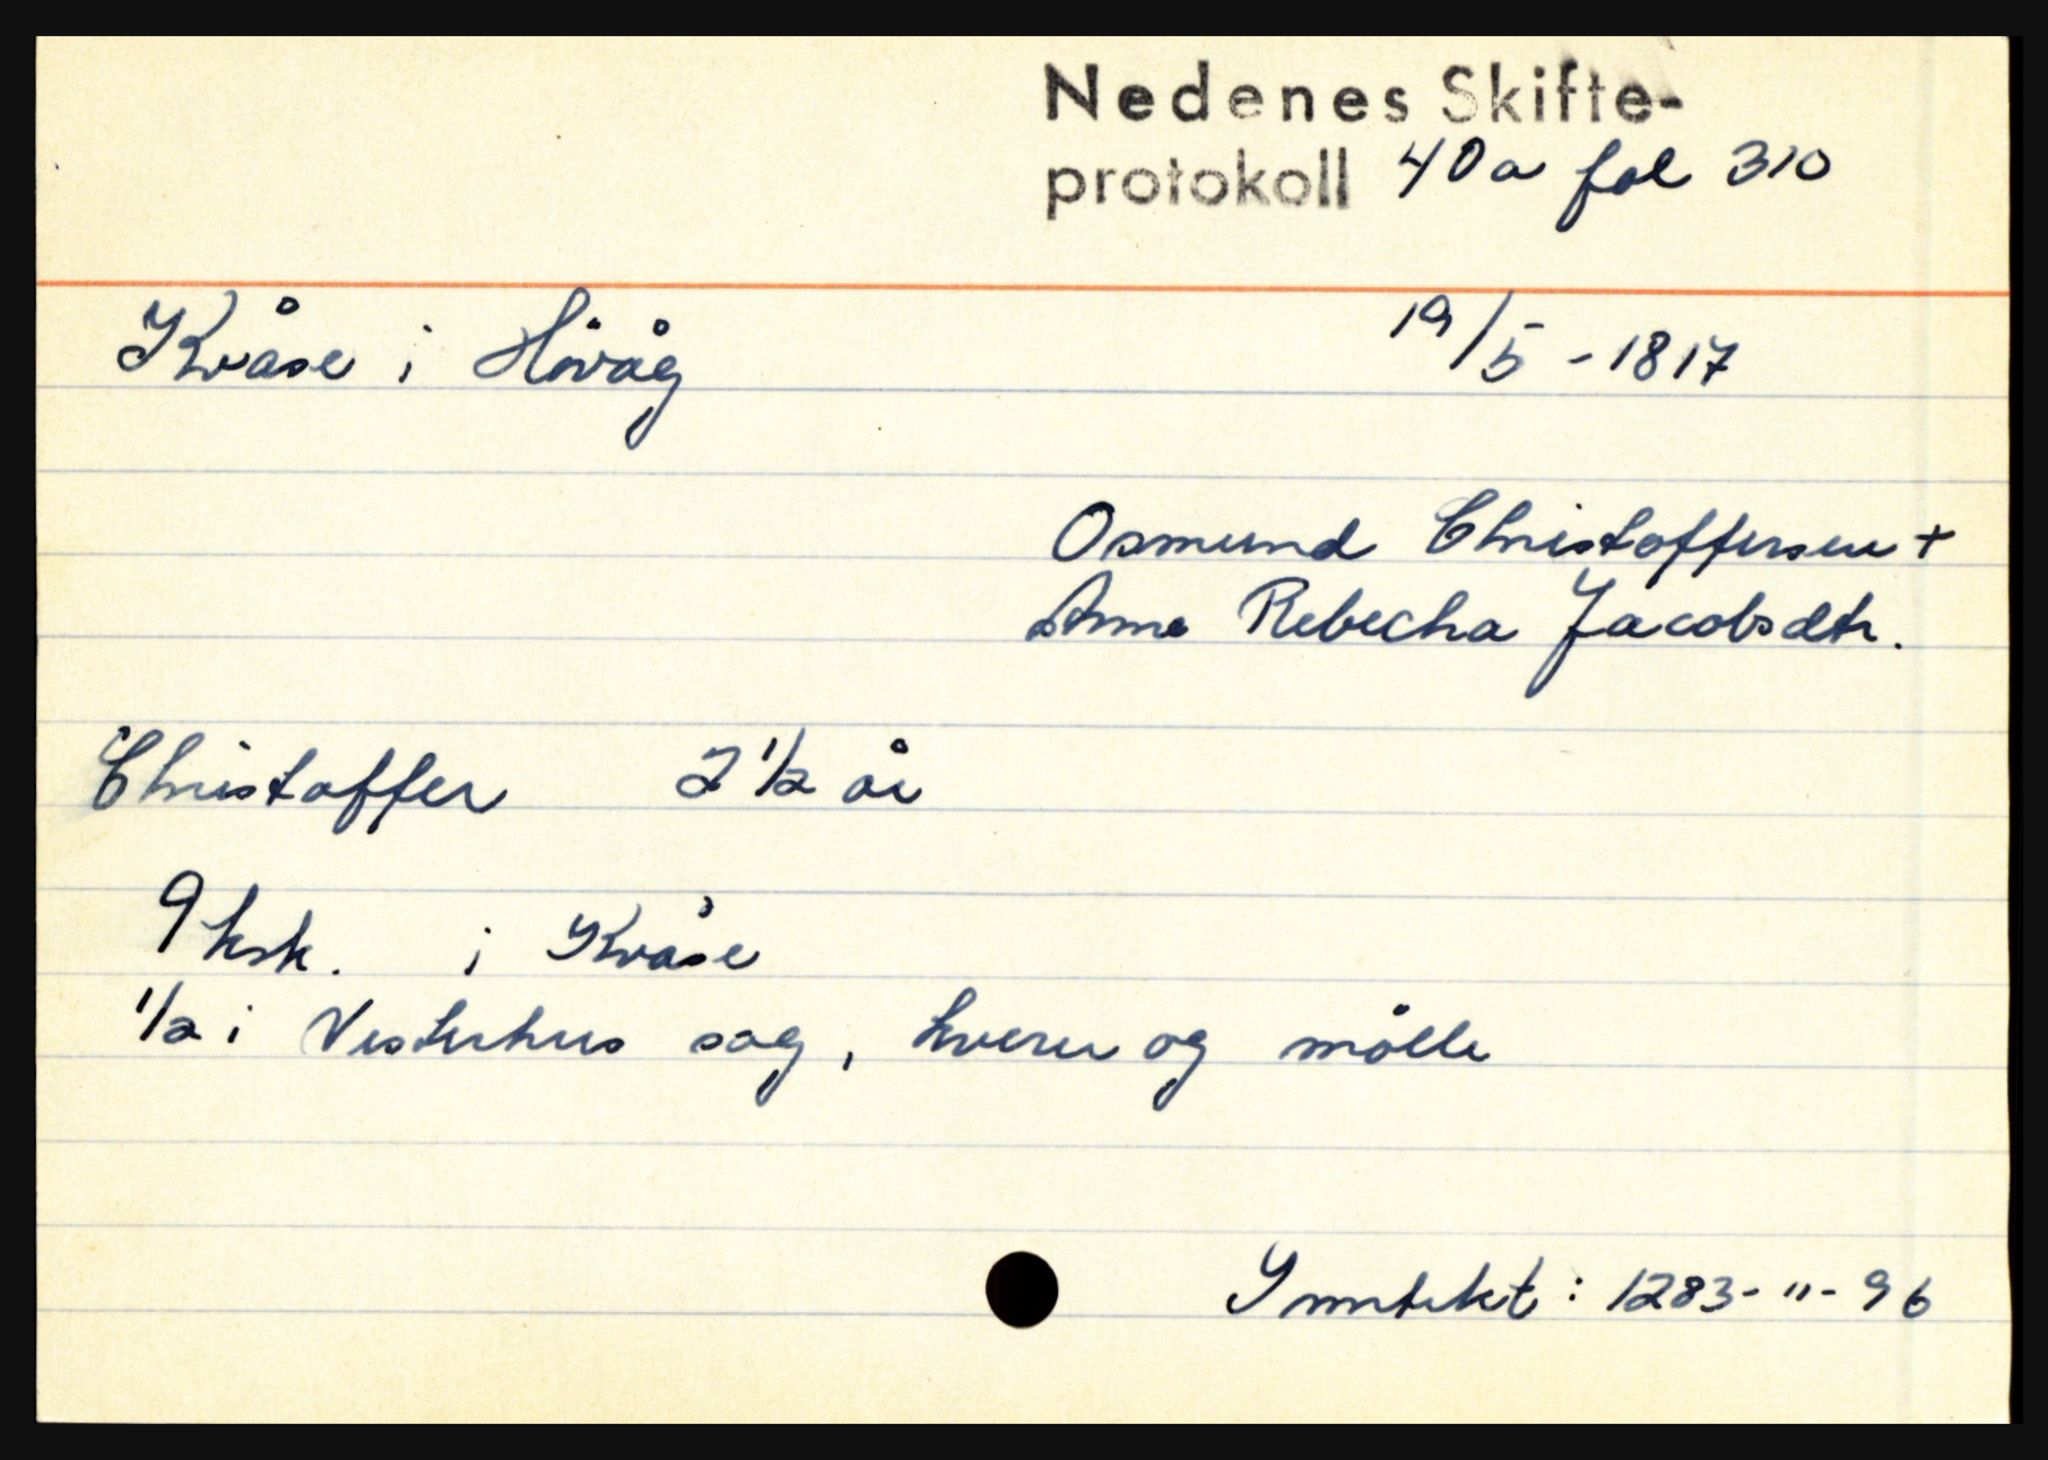 Nedenes Skifte-
protokoll 40a fol 310
Kvåse i Hövåg 19/5 - 1817
Osmund Christoffersen +
Anne Rebecha Jacobsdtr.
Christoffer 2 1/2 år
9 ksk. i Kvåse
1/2 i Vesterhus sag, kvern og mölle
Inntekt: 1283-"-96